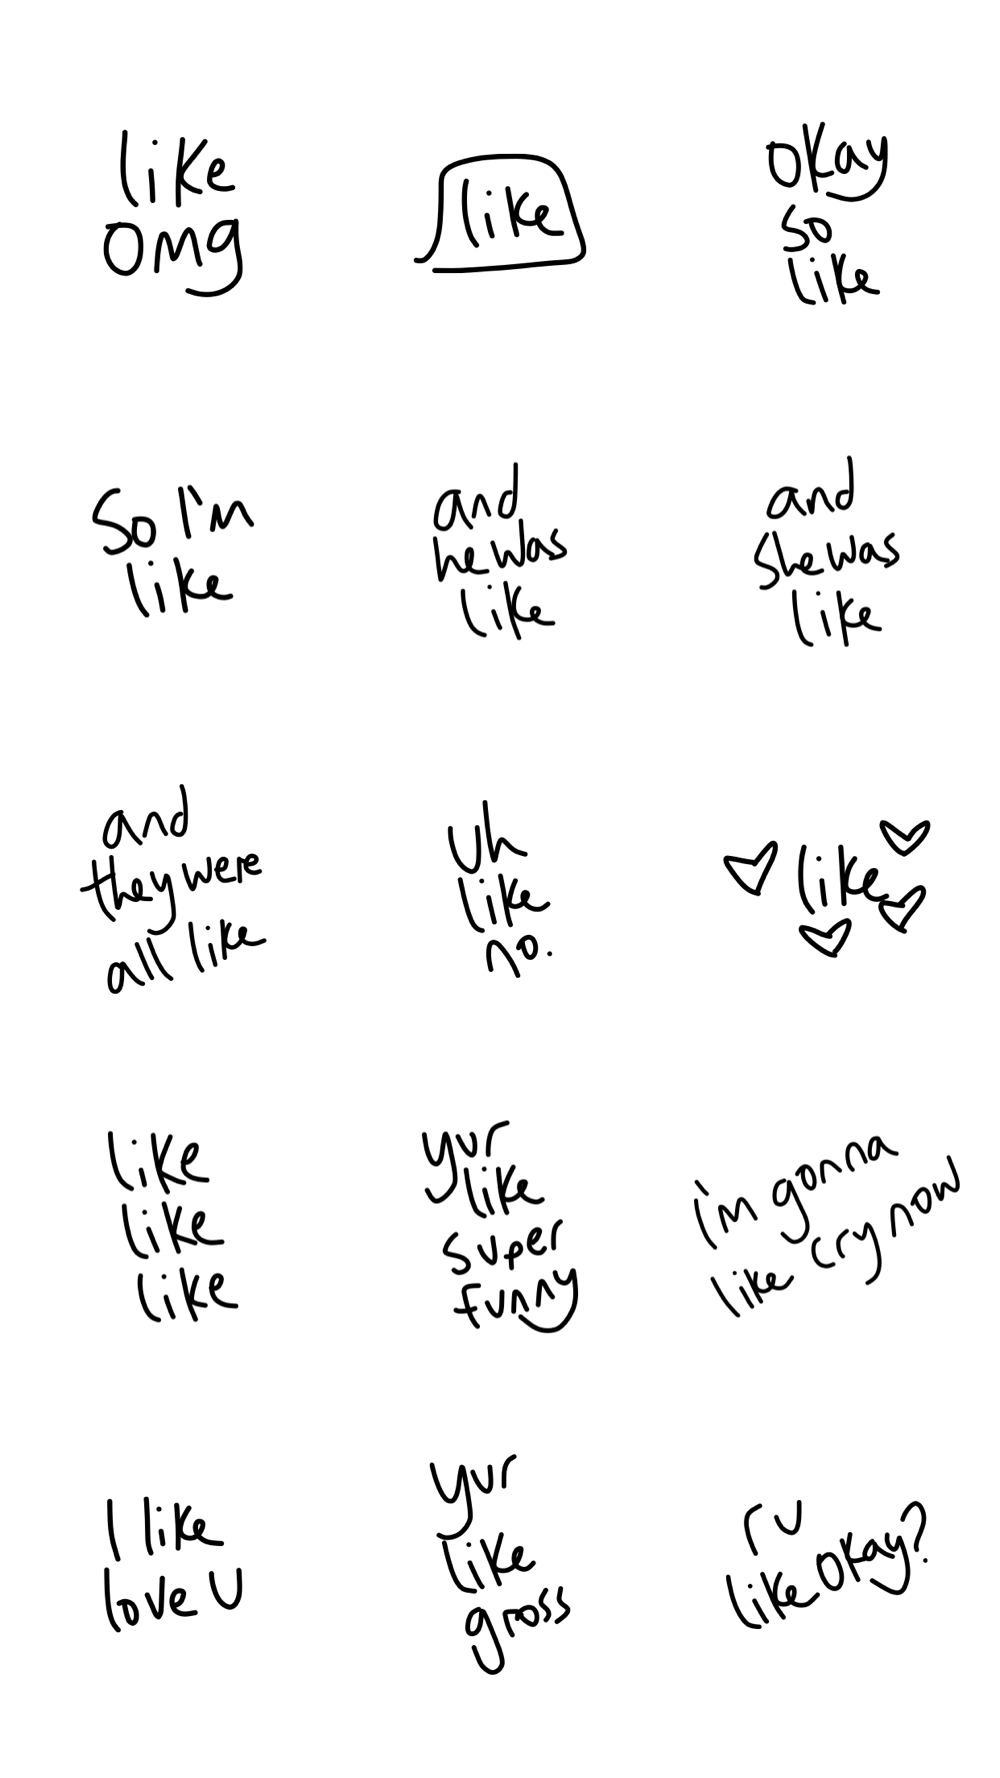 like
omg
like
okay
so
like
So I'm
like
and
he was
like
and
she was
like
and
they were
all like
uh
like
no.
like
like
like
like
yur
like
super
funny
i'm gonna
like cry now
I like
love U
yur
like
gross
r u
like okay?